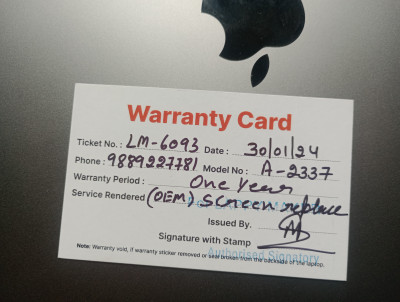 Warranty Card
Ticket No. : LM-6093 Date : 30/01/24
Phone : 9889227781 Model No : A-2337
Warranty Period : One Year
Service Rendered (OEM) Screen replace
Issued By.
Signature with Stamp
Authorised Signatory
Note: Warranty void, if warranty sticker removed or seal broken from the backside of the laptop.